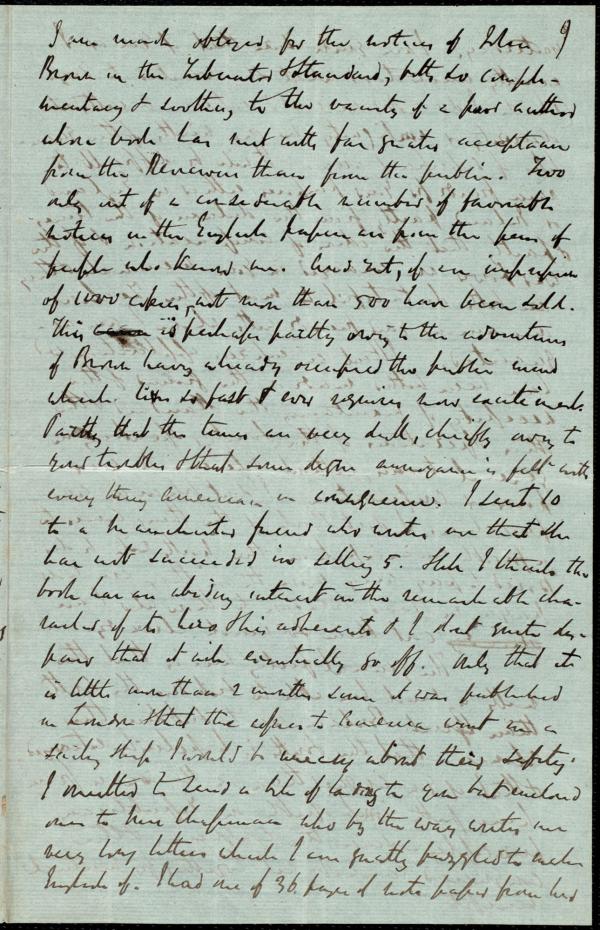 9
I am much obliged for the notices of John
Brown in the Liberator & Standard, both so compli-
mentary & soothing to the vanity of a poor author
whose book has met with far greater acceptance
from the Reviewers than from the public. Two
only out of a considerable number of favorable
notices in the English papers are from the pens of
people who know me. And yet, of an impression
of 1000 copies, not more than 500 have been sold.
This is perhaps partly owing to the adventures
of Brown having already occupied the public mind
which lives so fast & ever requires new excitement.
Partly that the times are very dull, chiefly owing to
your troubles & that some degree annoyance is felt with
everything American in consequence. I sent 10
to a Manchester friend who writes me that she
has not succeeded in selling 5. Still I think the
book has an abiding interest in the remarkable cha-
racter of its hero & his adherents & I don't quite des-
pair that it will eventually go off. Only that it
is little more than 2 months since it was published
in London & that the copies to America went in a
sailing ship I would be uneasy about their safety.
I omitted to send a bill of lading to you but enclosed
one to Mrs Chapman who by the way writes me
very long letters which I am greatly puzzled to make
English of. I had one of 36 pages of note paper from her